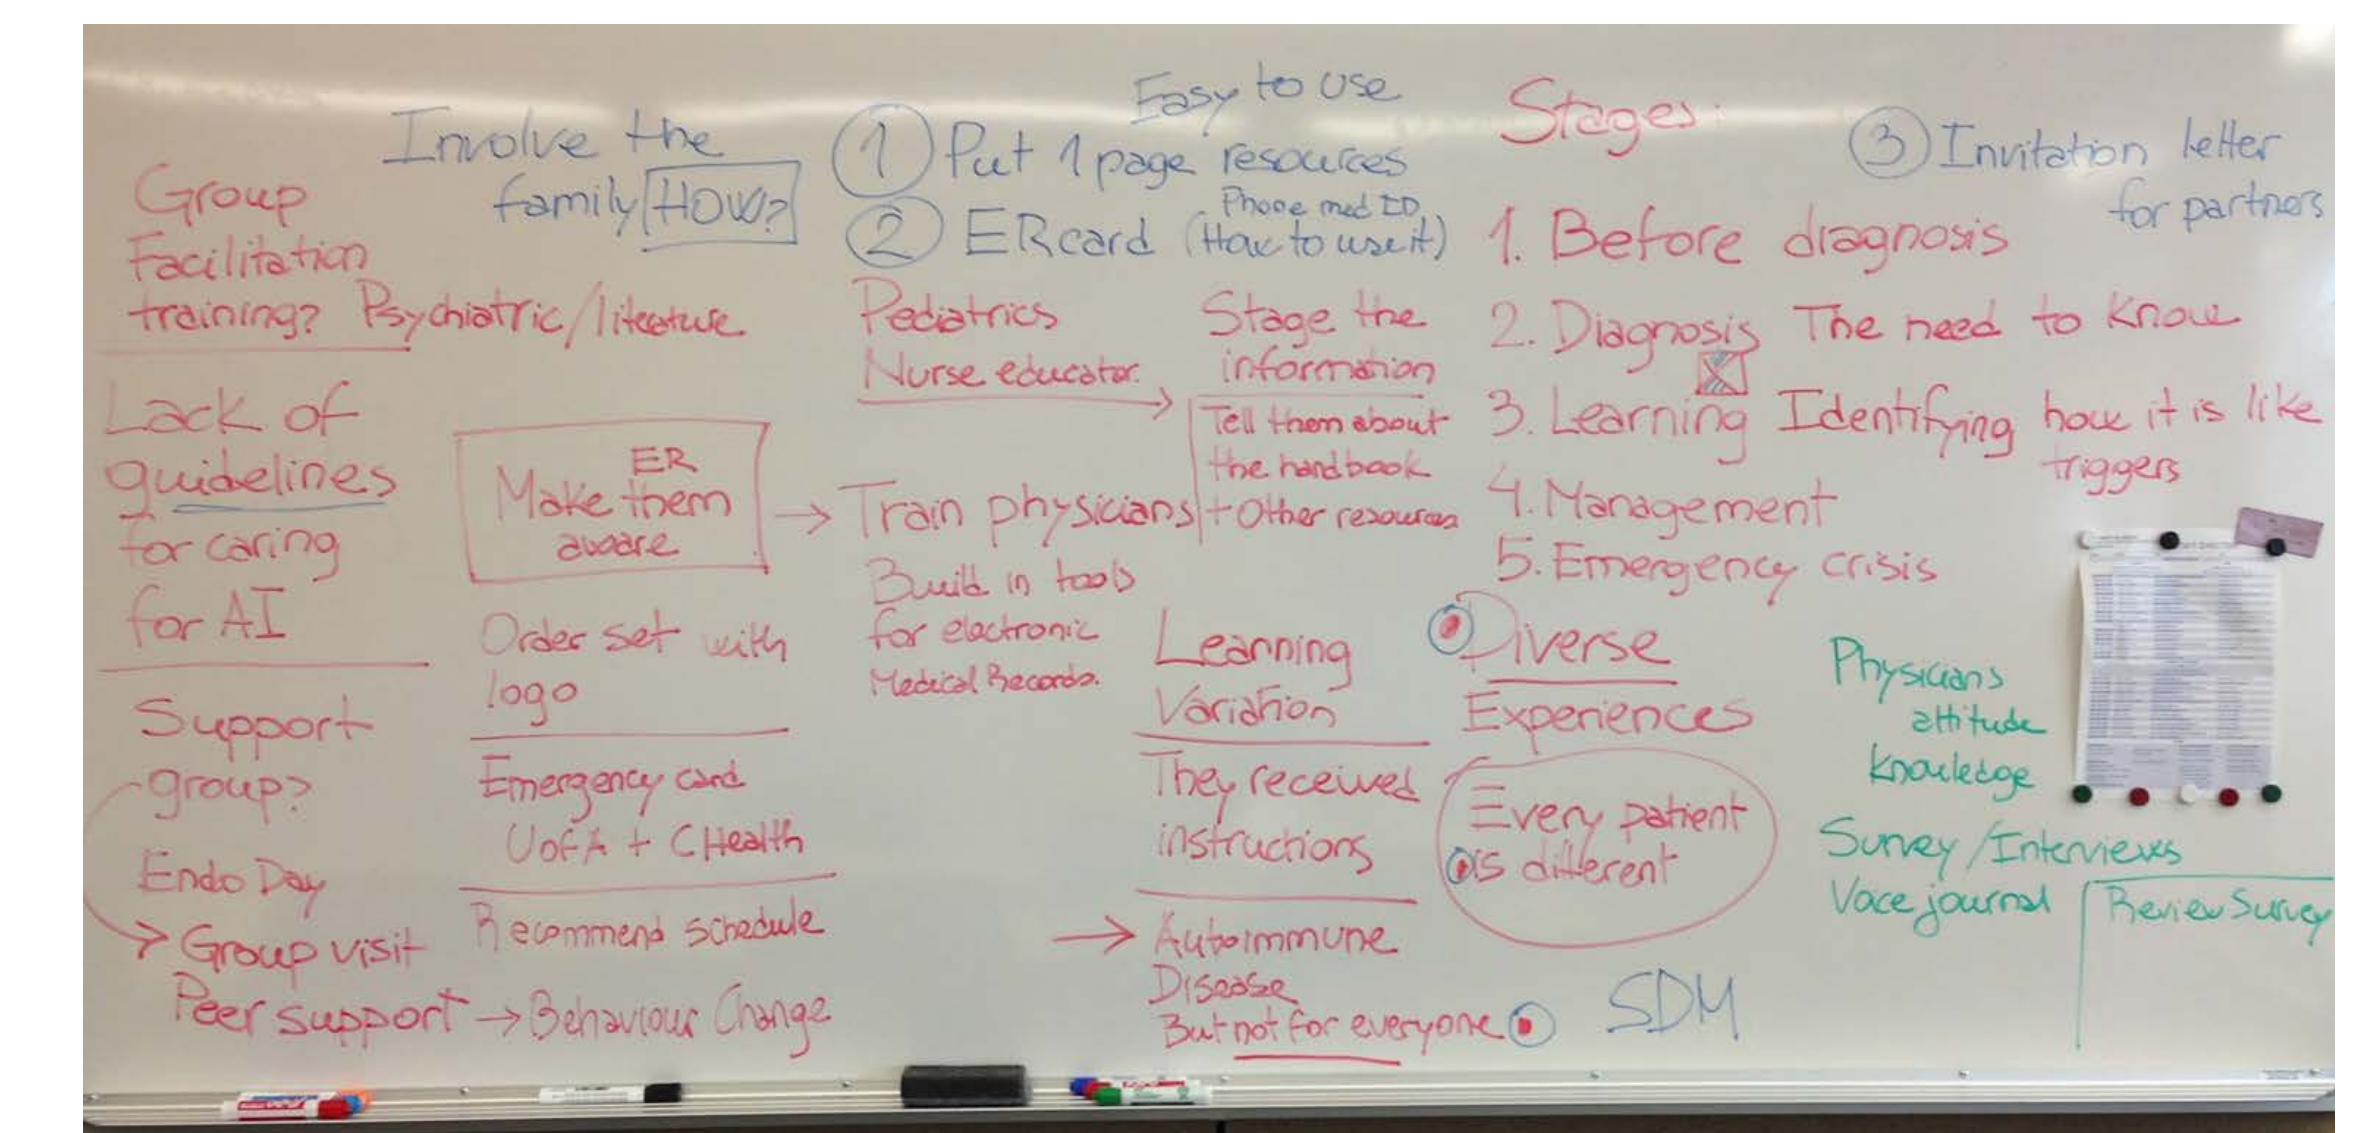 Involve the
family HOW?
Group
Facilitation
training? Psychiatric/literature
Lack of
guidelines
for caring
for AI
Support
group?
Endo Day
Group visit
Peer support → Behaviour Change
ER
Make them
aware
Order set with
logo
Emergency card
UofA + CHealth
Recommend schedule
Easy to use
1 Put 1 page resources
Phone med ID
2 ER card (How to use it)
Pediatrics
Nurse educator.
Stage the
information
Tell them about
the handbook
+ Other resources
→ Train physicians
Build in tools
for electronic
Medical Records.
Learning
Variation
They received
instructions
→ Autoimmune
Disease
But not for everyone
Stages:
1. Before diagnosis
2. Diagnosis The need to know
3. Learning Identifying how it is like
triggers
4. Management
5. Emergency crisis
Diverse
Experiences
Every patient
is different
SDM
3 Invitation letter
for partners
Physicians
attitude
knowledge
Survey/Interviews
Voce journal
Review Survey